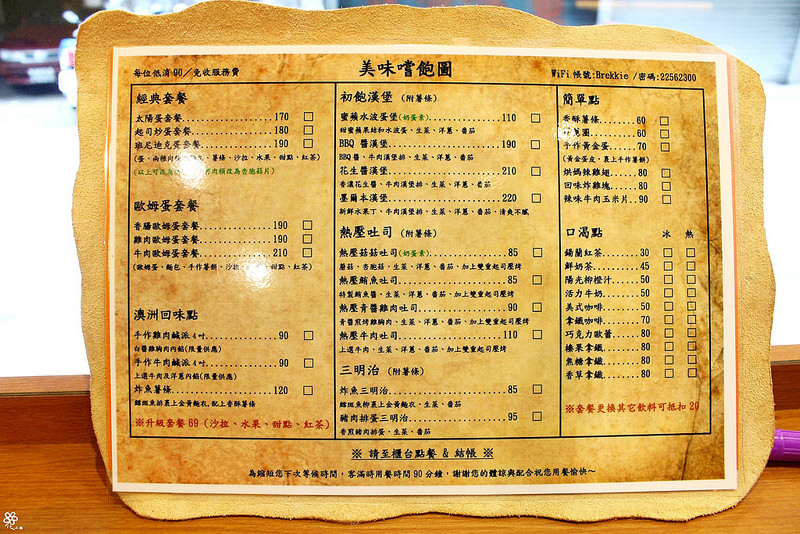 每位低消90／免收服務費
美味嚐飽圖
WiFi 帳號:Brekkie /密碼:22562300
經典套餐
太陽蛋套餐 170 □
起司炒蛋套餐 180 □
班尼迪克蛋套餐 190 □
薯條、沙拉、水果、甜點、紅茶)
歐姆蛋套餐
香腸歐姆蛋套餐 190 □
雞肉歐姆蛋套餐 190 □
牛肉歐姆蛋套餐 210 □
(歐姆蛋、麵包、手作薯餅、沙拉、甜點、紅茶)
澳洲回味點
手作雞肉鹹派4吋 90 □
白醬雞胸肉內餡(限量供應)
手作牛肉鹹派4吋 90 □
上選牛肉及洋蔥內餡(限量供應)
炸魚薯條 120 □
鱈斑魚排裹上金黃麵衣,配上香酥薯條
※升級套餐 69 (沙拉、水果、甜點、紅茶)
初飽漢堡 (附薯條)
蜜蘋水波蛋堡(奶蛋素) 110 □
甜蜜蘋果結和水波蛋、生菜、洋蔥、番茄
BBQ 醬漢堡 190 □
BBQ 醬、牛肉漢堡排、生菜、洋蔥、番茄
花生醬漢堡 210 □
香濃花生醬、牛肉漢堡排、生菜、洋蔥、番茄
墨爾本漢堡 220 □
新鮮水果丁、牛肉漢堡排、生菜、洋蔥、番茄、清爽不膩
熱壓吐司 (附薯條)
熱壓菇菇吐司(奶蛋素) 85 □
蘑菇、杏胞菇、生菜、洋蔥、番茄、加上雙重起司壓烤
熱壓鮪魚吐司 85 □
特製鮪魚醬、生菜、洋蔥、番茄、加上雙重起司壓烤
熱壓青醬雞肉吐司 90 □
青醬煎烤雞胸肉、生菜、洋蔥、番茄、加上雙重起司壓烤
熱壓牛肉吐司 110 □
上選牛肉、生菜、洋蔥、番茄、加上雙重起司壓烤
三明治 (附薯條)
炸魚三明治 85 □
鱈斑魚柳裹上金黃麵衣、生菜、番茄
豬肉排蛋三明治 95 □
香煎豬肉排蛋、生菜、番茄
簡單點
香酥薯條 60 □
蔥圈 60 □
手作黃金蛋 70 □
(黃金蛋皮,裹上手作薯餅)
烘媽辣雞翅 80 □
回味炸雞塊 80 □
辣味牛肉玉米片 90 □
口渴點 冰 熱
錫蘭紅茶 30 □ □
鮮奶茶 45 □ □
陽光柳橙汁 50 □
活力牛奶 50 □ □
美式咖啡 60 □ □
拿鐵咖啡 70 □ □
巧克力歐蕾 80 □ □
榛果拿鐵 80 □ □
焦糖拿鐵 80 □ □
香草拿鐵 80 □ □
※套餐更換其它飲料可抵扣 20
※ 請至櫃台點餐 & 結帳 ※
為縮短您下次等候時間，客滿時用餐時間90分鐘，謝謝您的體諒與配合祝您用餐愉快～